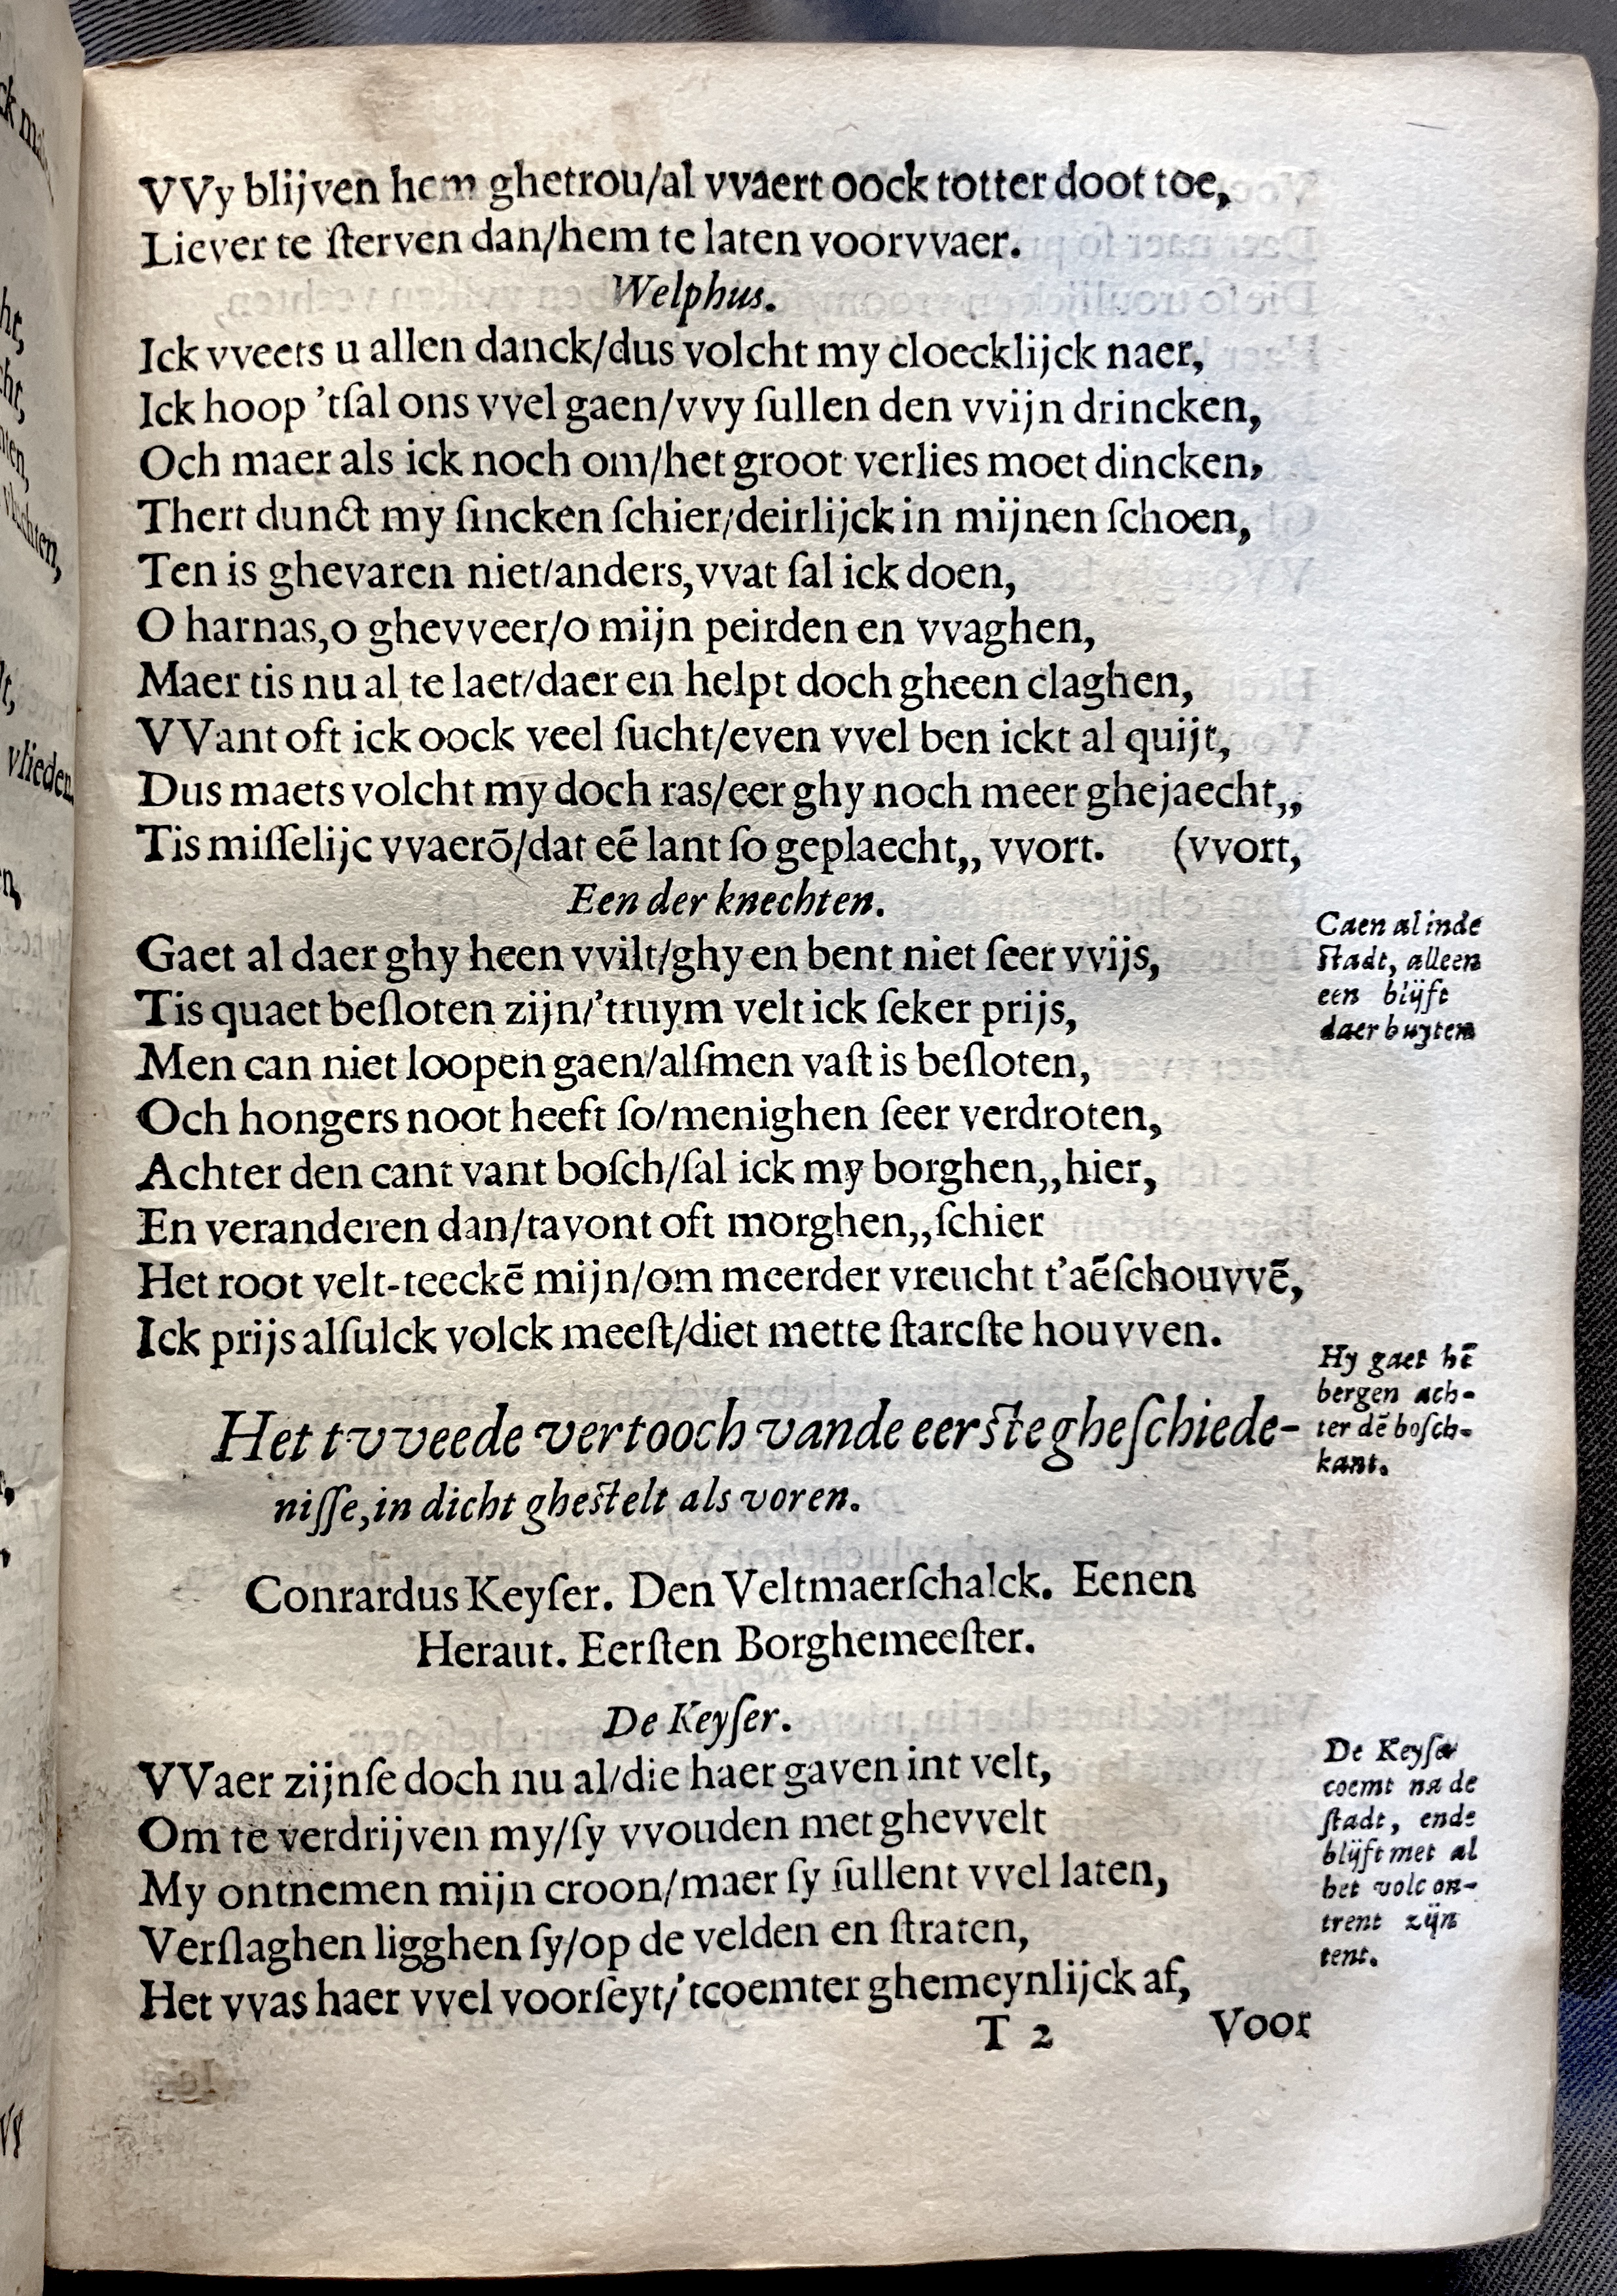 VVy blijven hem ghetrou/al vvaert oock totter doot toe,
Liever te ſterven dan/hem te laten voorvvaer.
Welphus.
Ick vveets u allen danck/dus volcht my cloecklijck naer,
Ick hoop 'tſal ons vvel gaen/vvy ſullen den vvijn drincken,
Och maer als ick noch om/het groot verlies moet dincken,
Thert dunct my ſincken ſchier/deirlijck in mijnen ſchoen,
Ten is ghevaren niet/anders,vvat ſal ick doen,
O harnas,o ghevveer/o mijn peirden en vvaghen,
Maer tis nu al te laet/daer en helpt doch gheen claghen,
VVant oft ick oock veel ſucht/even vvel ben ickt al quijt,
Dus maets volcht my doch ras/eer ghy noch meer ghejaecht,,
Tis miſſelijc vvaerō/dat eē lant ſo geplaecht,, vvort. (vvort,
Een der knechten.
Gaet al daer ghy heen vvilt/ghy en bent niet ſeer vvijs,
Tis quaet beſloten zijn/'truym velt ick ſeker prijs,
Men can niet loopen gaen/alſmen vaſt is beſloten,
Och hongers noot heeft ſo/menighen ſeer verdroten,
Achter den cant vant boſch/ſal ick my borghen,,hier,
En veranderen dan/tavont oft morghen,,ſchier
Het root velt-teeckē mijn/om meerder vreucht t'aēſchouvvē,
Ick prijs alſulck volck meeſt/diet mette ſtarcſte houvven.
Caen al inde
ſtadt, alleen
een blijft
daer buyten
Hy gaet hē
bergen ach-
ter dē boſch-
kant.
Het tvveede vertooch vande eerſte gheſchiede-
niſſe,in dicht gheſtelt als voren.
Conrardus Keyſer. Den Veltmaerſchalck. Eenen
Heraut. Eerſten Borghemeeſter.
De Keyſer.
VVaer zijnſe doch nu al/die haer gaven int velt,
Om te verdrijven my/ſy vvouden met ghevvelt
My ontnemen mijn croon/maer ſy ſullent vvel laten,
Verſlaghen ligghen ſy/op de velden en ſtraten,
Het vvas haer vvel voorſeyt/'tcoemter ghemeynlijck af,
De Keyſer
coemt na de
ſtadt, ende
blijft met al
het volc on-
trent zijn
tent.
T 2 Voor